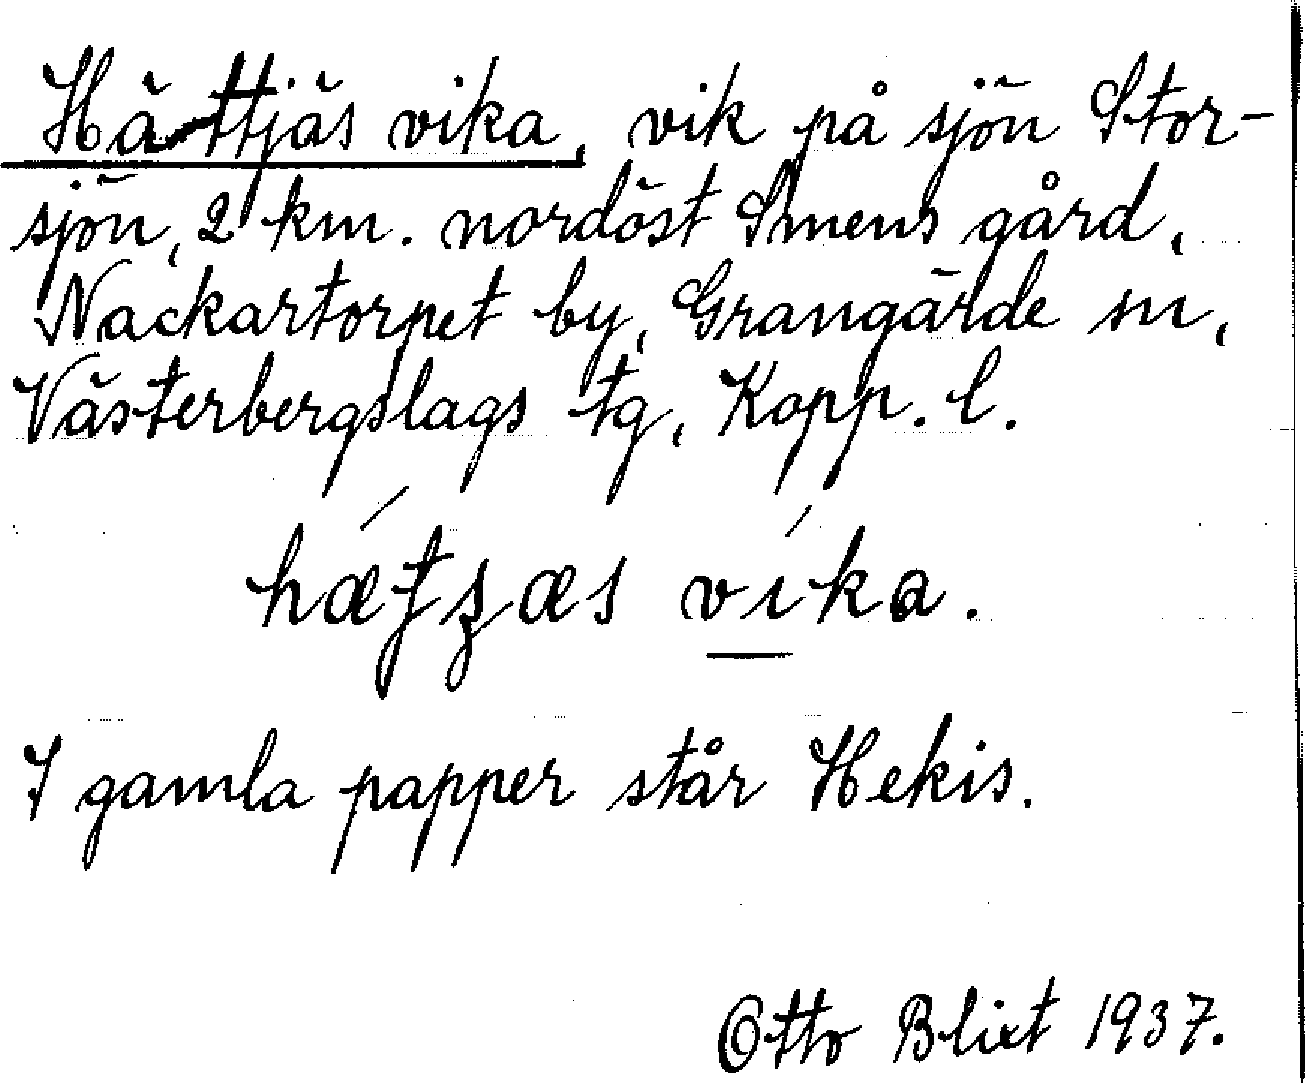 Hättjäs vika, vik på sjön Stor-
sjön, 2 km. nordöst Smens gård,
Nackartorpet by, Grangärde sn,
Västerbergslags tg, Kopp. l.
vika.
I gamla papper står Hekis.
Otto Blixt 1937.